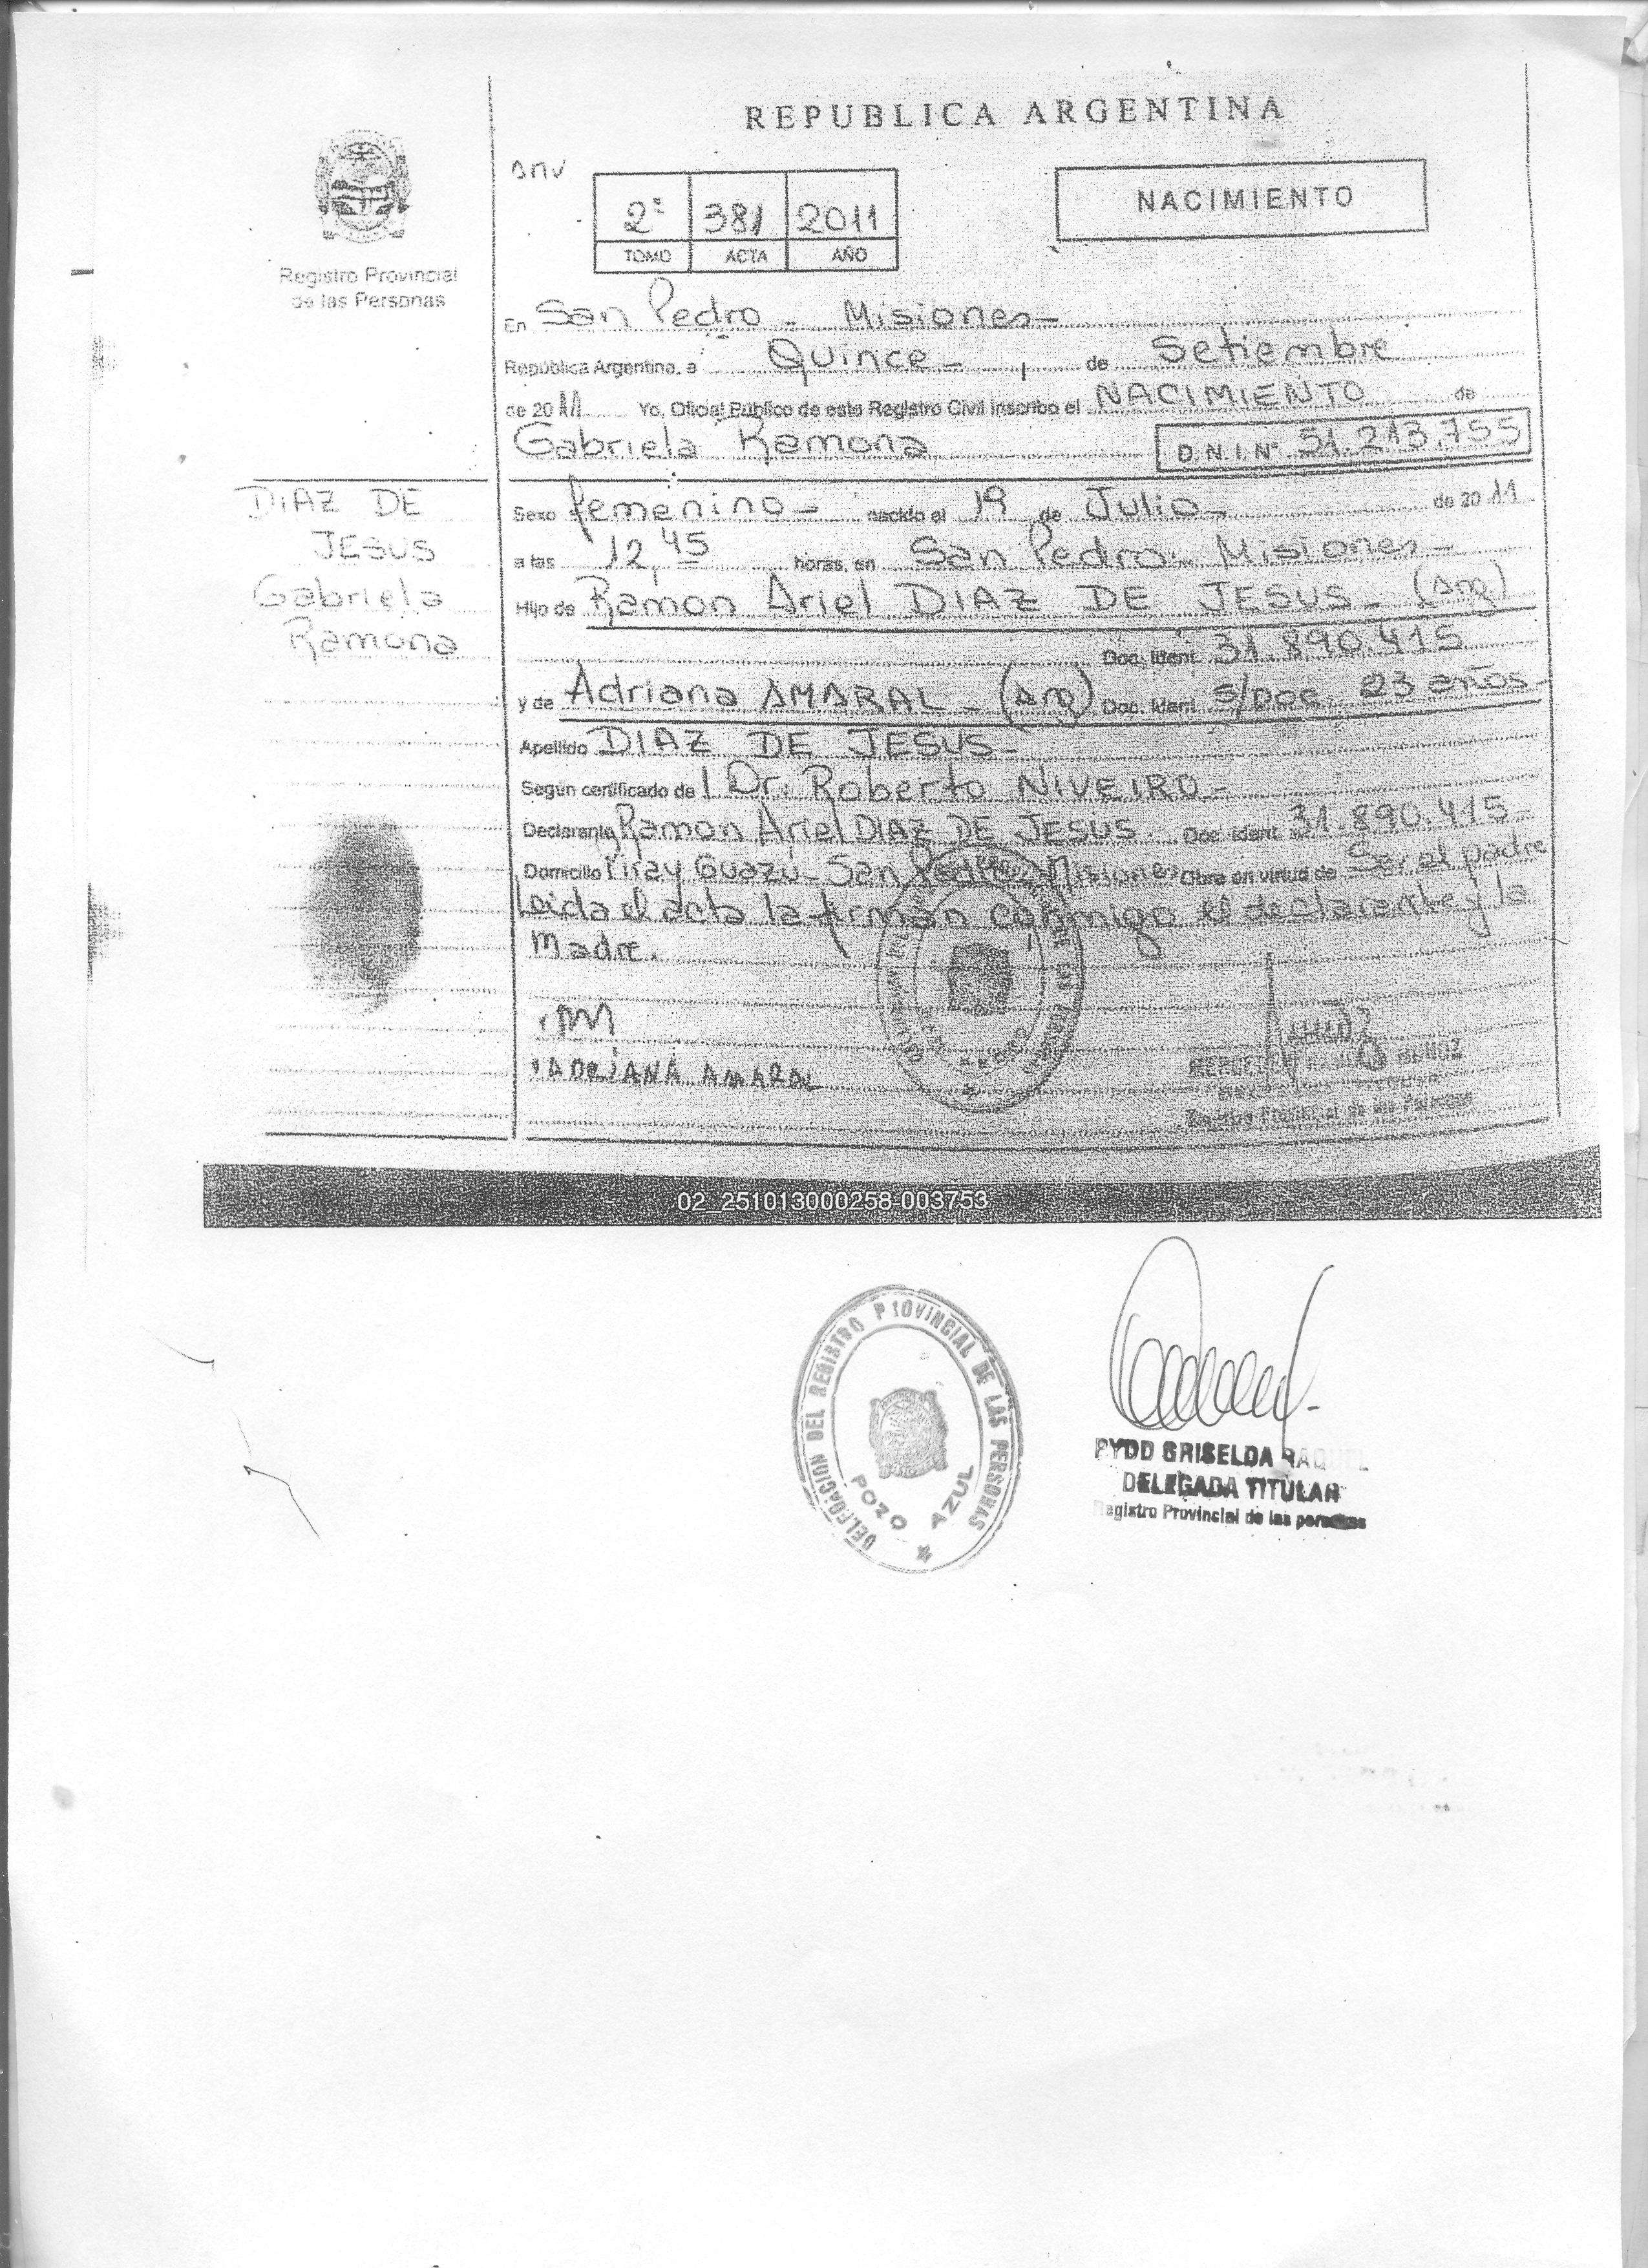 REPUBLICA ARGENTINA
Registro Provincial
de las Personas
2º 381 2011
TOMO ACTA AÑO
NACIMIENTO
En San Pedro - Misiones-
República Argentina, a Quince - de Setiembre
de 2011 Yo, Oficial Público de este Registro Civil inscribo el NACIMIENTO de
Gabriela Ramona D.N.I.Nº 51.213.755
DIAZ DE
JESUS
Gabriela
Ramona
Sexo femenino - nacido el 19 de Julio - de 2011
a las 12,45 horas, en San Pedro - Misiones -
Hijo de Ramon Ariel DIAZ DE JESUS - (Arg)
Doc. Ident. 31.890.415
y de Adriana AMARAL - (Arg) Doc. Ident. s/Doc 23 años -
Apellido DIAZ DE JESUS -
Según certificado de l Dr. Roberto NIVEIRO -
Declarante Ramon Ariel DIAZ DE JESUS Doc. Ident. 31.890.415 -
Domicilio Piray Guazú - San Pedro - Misiones Obra en virtud de Ser el padre
Leida el acta la firman conmigo el declarante y la
Madre.
ADRIANA AMARAL
Registro Provincial de las Personas
02_251013000258-003753
DELEGACION DEL REGISTRO PROVINCIAL DE LAS PERSONAS
POZO AZUL
GRISELDA RAQUEL
DELEGADA TITULAR
Registro Provincial de las personas